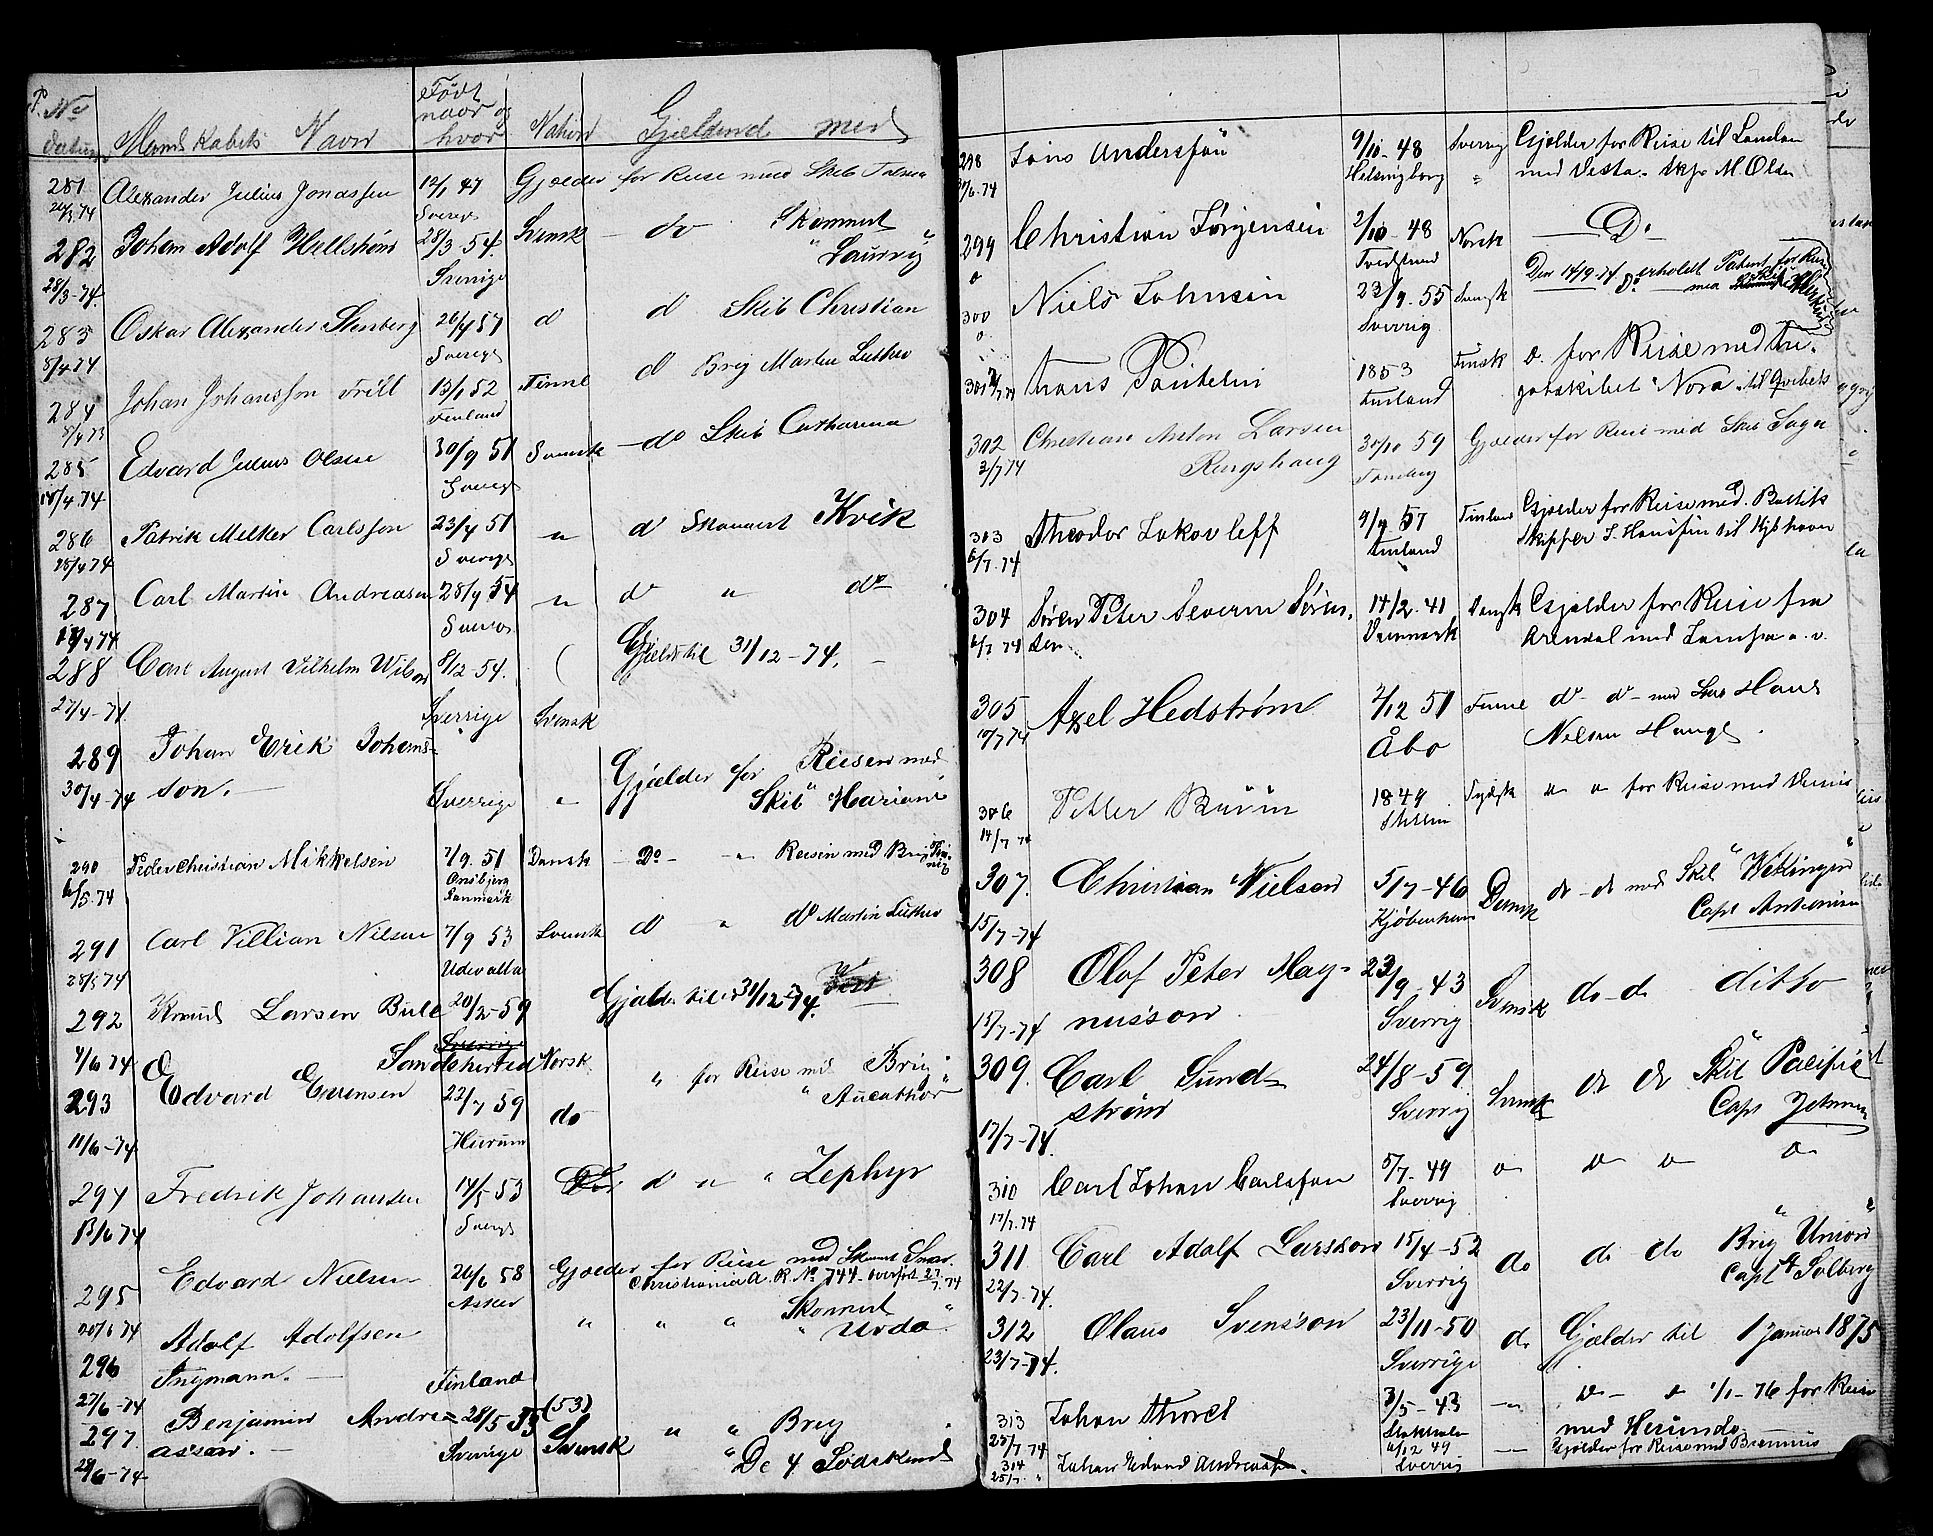 No Datum Mandskabets Navn Født naar og hvor Nation Gjældend med
281 Alexander Julius Jonassen 12/1 47 Gjælder for Reise med Skib
26/3 74 Sverige
282 Johan Adolf Hellstrøm 28/3-54. Svensk do Skonnert
28/3-74. Sverige "Laurvig"
283 Oskar Alexander Stenberg 26/4 57 d d Skib Christian
8/4 74 Sverige
284 Johan Johansson Frill 13/1 52 Finne d Brig Martin Luther
8/4 73 Finland
285 Edvard Julius Olsen 30/9 51 Svensk do Skib Catharina
18/4 74 Sverige
286 Patrik Melker Carlsson 23/4 51 " d Skonnert Kvik
18/4 74 Sverige
287 Carl Martin Andreasen 28/9 54 " d " do
Sverge
288 Carl August Vilhelm Wilson 8/12 54. Gjeld til 31/12-74.
27/4-74 Sverrige Svensk
289 Johan Erik Johans- Gjælder for Reisen med
30/4-74 son. Sverrige " Skib "Mariane"
290 Peder Christian Mikkelsen 7/9. 51 Dansk Do " Reisen med Brig
6/5.74 Danmark
291 Carl Villian Nilsen 7/9 53 Svensk d " do Martin Luther
28/5 74 Udevalla
292 Knud Larsen Bule 20/2-59 Gjælder til 31/12-74.
4/6 74 Sandsherred Norsk
293 Edvard Evensen 22/7 59 do " for Reise med Brig
11/6-74 Hurum
294 Fredrik Johansen 14/5 53 d " " Zephyr
13/6 74 Sverge
295 Edvard Nielsen 26/6 58 Gjælder for Reise med Skonnert Snar.
20/6 74 Asker Christiania A. R. No 744 overført 27/7.74
296 Adolf Adolfsen " " " Skonnert
27/6-74 Ingmann. Finland "Urda"
297 Benjamin Andre- 28/5 35 (53) " " Brig
29/6-74 assen. Sverige Svensk "De 4 Sødskende
298 Jøns Andersson 9/10-48 Sverrig Gjælder for Reise til London
Helsingborg " med Vesta. Skpr M. Olsen
299 Christian Jørgensen 2/10-48 Norsk Do
Tvedstrand Den 14/9-74 erholdt Patent for Reise
300 Niels Johnsen 23/9.55 Svensk Do med Skib
Sverrig
301 Frans Pantelin 1853 Finsk d. for Reise med Fre-
Finland gatskibet "Nora" til Qvebek
302 Christian Anton Larsen 30/10 59 Gjælder for Reise med Skib Saga
2/7 74 Ringshaug Tønsberg
303 Theodor Jakovleff 4/9 57 Finland Gjælder for Reise med. Baltik
6/7.74 Finland Skipper J. Hansen til Kjbhavn
304 Søren Peter Severin Søren- 14/2.41 Dansk Gjælder for Reise fra
6/7 74 sen Danmark Arendal med
305 Axel Hedstrøm 2/12 51 Finne do do med Skib Hans
10/7 74 Åbo Nielsen Hauge
306 Petter Burin 1849 Tydsk " " for Reise med Venus
14/7 74 Stettin
307. Christian Nielsen 5/7-46 Dansk do - do med Skib "Wellington"
15/7-74 Kjøbenhavn Capt Antonisen
308 Olof Peter Mag- 23/9-43 Svensk do-do ditto
15/7-74 nusson Sverrig
309. Carl Sund- 24/8-59 Svensk do do Skib Pacific
17/7-74. strøm Sverrig Capt Johnsen
310 Carl Johan Carlsson 5/7.49 " " " "
17/7.74 Sverrig
311 Carl Adolf Larsson 15/4-52 do do do Brig "Union"
22/7-74. Sverrig Capt A Solberg
312 Olaus Svensson 23/11-50 do Gjælder til 1 Januar 1875
23/7-74. Sverrige
313 Johan Thorel 3/5-43 " " " 1/1-76 for Reise
25/7 74 Stokholm med
314 Johan Edvard Andreassen. 4/12 49 " Gjælder for Reise med
25/7 " Sverrig